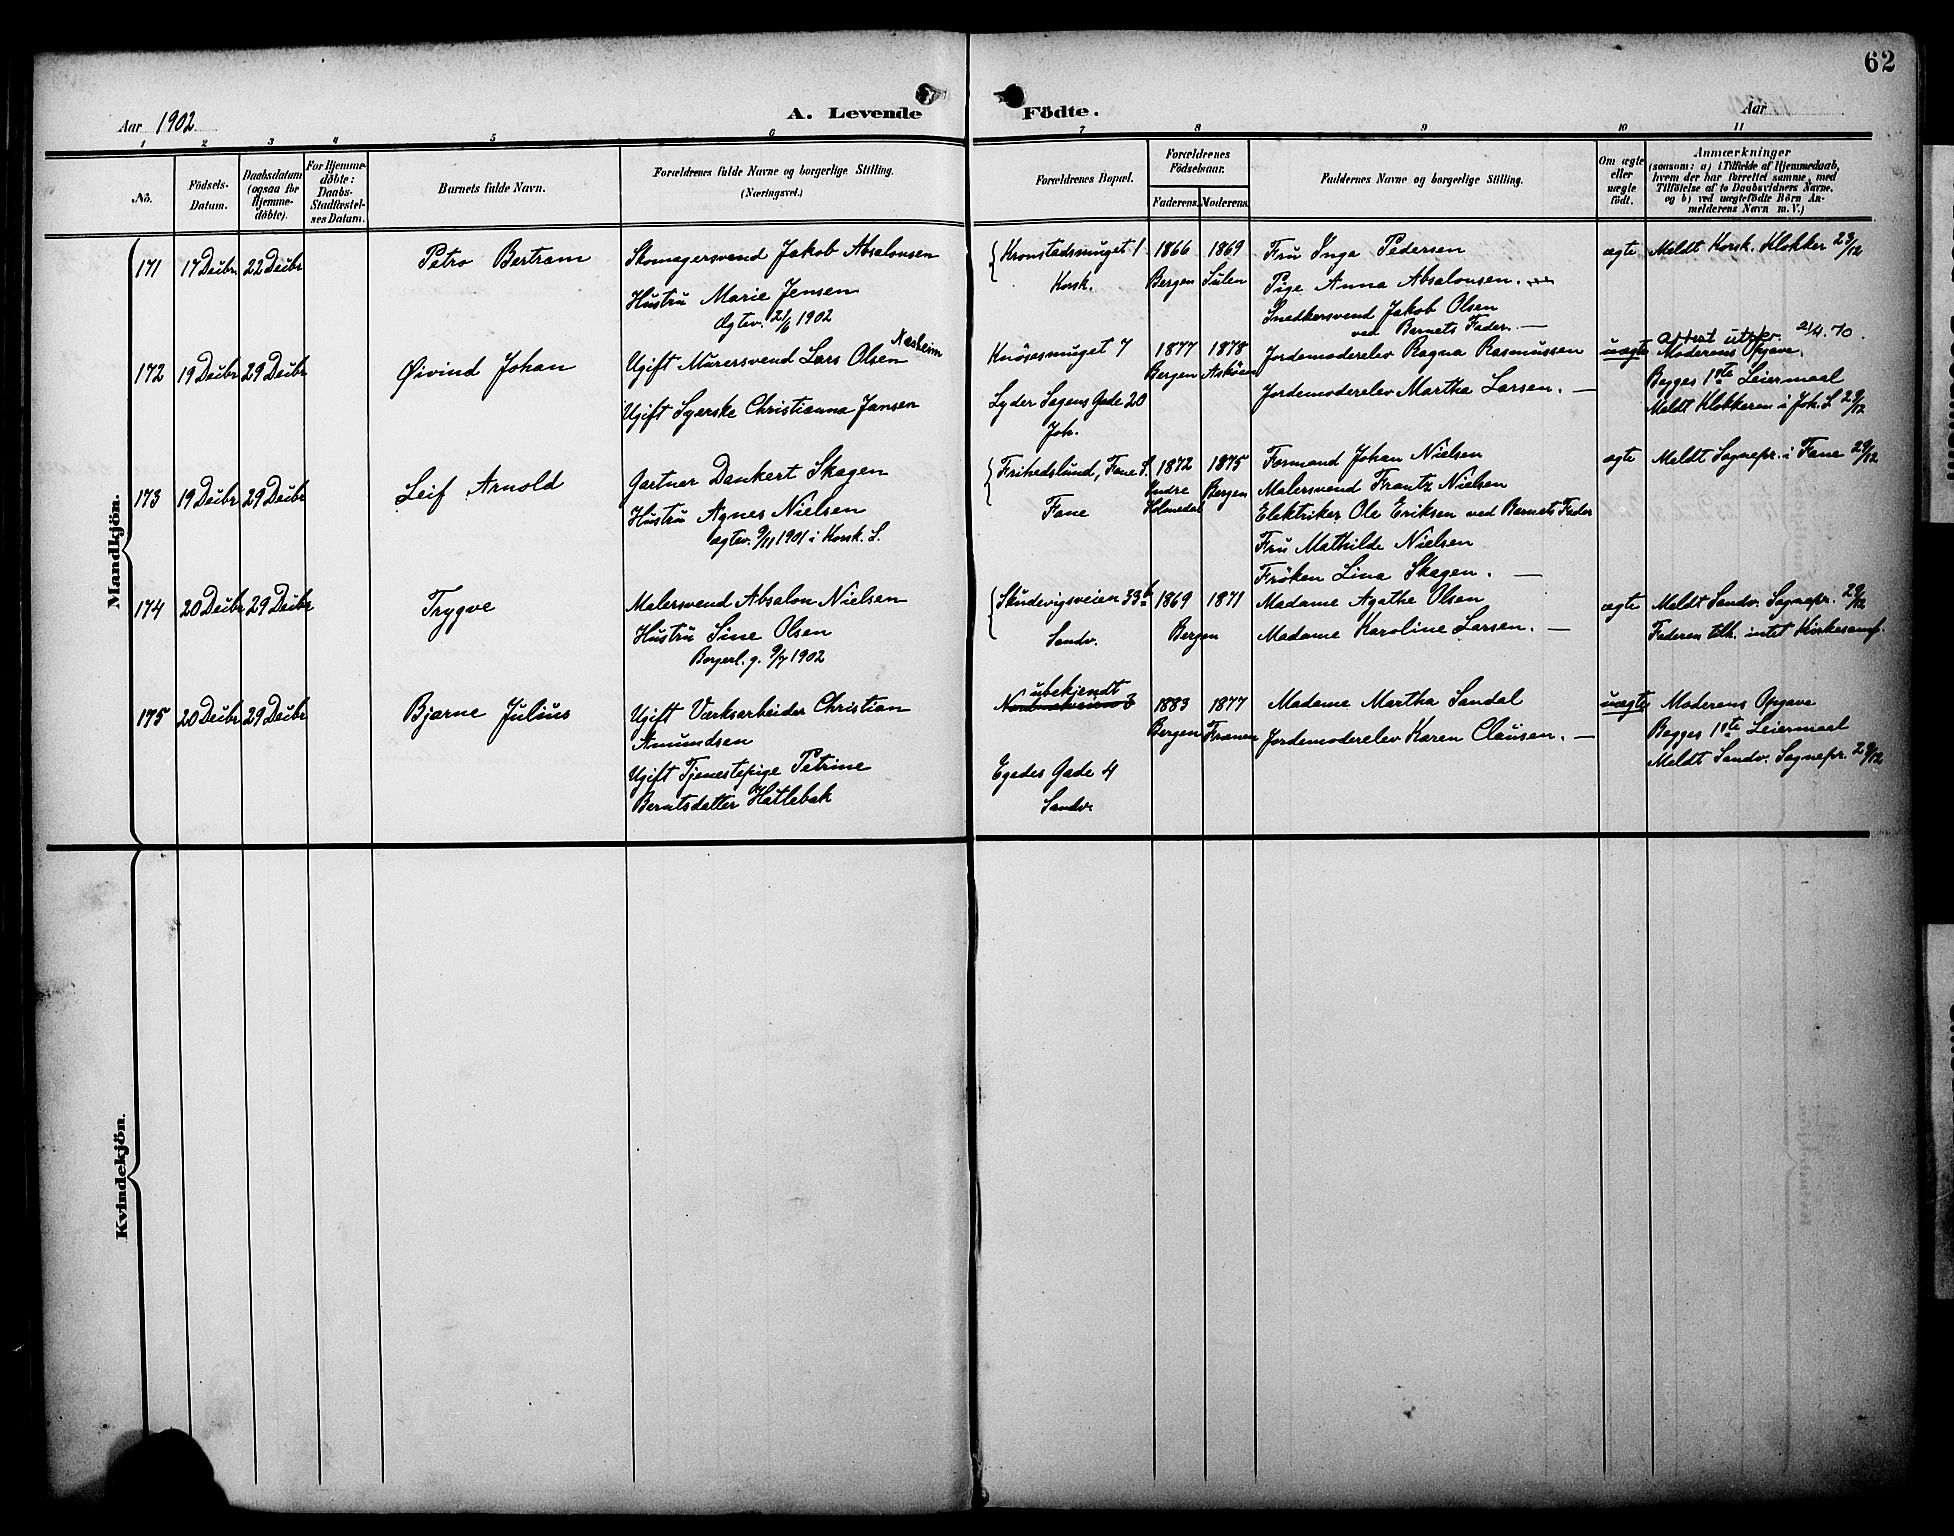 62
Aar 1902
A. Levende Födte.
Aar
1 2 3 4 5 6 7 8 9 10 11
No.
Födsels-Datum.
Daabsdatum (ogsaa for Hjemmedöbte).
For Hjemmedöbte: Daabs-Stadfæstelses Datum.
Barnets fulde Navn.
Forældrenes fulde Navne og borgerlige Stilling. (Næringsvei.)
Forældrenes Bopæl.
Forældrenes Födselsaar.
Faderens. Moderens.
Faddernes Navne og borgerlige Stilling.
Om ægte eller uægte födt.
Anmærkninger
(saasom: a) i Tilfælde af Hjemmedaab, hvem der har forrettet samme, med Tilföielse af to Daabsvidners Navne. og b) ved uægtefödte Börn Anmelderens Navn m. V.)
Mandkjön.
171 17 Decbr 22 Decbr
Petro Bertram
Skomagersvend Jakob Absalonsen
Hustru Marie Jensen
Ægtev. 21/6 1902
Kronstadsmuget 1
Korsk.
1866 Bergen
1869 Sulen
Fru Inga Pedersen
Pige Anna Absalonsen.
Snedkersvend Jakob Olsen
ved Barnets Fader. —
ægte
Meldt Korsk. Klokker 23/12
172 19 Decbr 29 Decbr
Øivind Johan
Næsheim
Ugift Murersvend Lars Olsen
Ugift Syerske Christianna Jansen
Knösesmuget 7
Lyder Sagens Gade 20
Joh.
1877 Bergen
1878 Askøen
Jordemoderelev Ragna Rasmussen
Jordemoderelev Martha Larsen. —
uægte
Attest utskr. 21/4.70.
Moderens Opgave.
Begges 1ste Leiermaal
Meldt Klokkeren i Joh. S 29/12
173 19 Decbr 29 Decbr
Leif Arnold
Gartner Dankert Skagen
Hustru Agnes Nielsen
Ægtev. 9/11 1901 i Korsk. S.
Frihedslund, Fane S.
Fane
1872 Indre Holmedal
1875 Bergen
Formand Johan Nielsen
Malersvend Frantz Nielsen
Elektriker Ole Eriksen ved Barnets Fader
Fru Mathilde Nielsen
Fröken Lina Skagen. —
ægte
Meldt Sognepr. i Fane 29/12
174 20 Decbr 29 Decbr
Trygve
Malersvend Absalon Nielsen
Hustru Sine Olsen
Borgerl. g. 9/7 1902
Skudevigsveien 33b
Sandv.
1869 1871
Bergen
Madame Agathe Olsen
Madame Karoline Larsen. —
ægte
Meldt Sandv. Sognepr. 29/12
Faderen tilh. intet Kirkesamf.
175 20 Decbr 29 Decbr
Bjarne Julius
Ugift Værksarbeider Christian
Amundsen
Ugift Tjenestepige Petrine
Berntsdatter Hatlebak
ubekjendt
Egedes Gade 4
Sandv.
1883 Bergen
1877 Frænen
Madame Martha Sandal
Jordemoderelev Karen Clausen. —
uægte
Moderens Opgave
Begges 1ste Leiermaal
Meldt Sandv. Sognepr. 29/12
Kvindekjön.